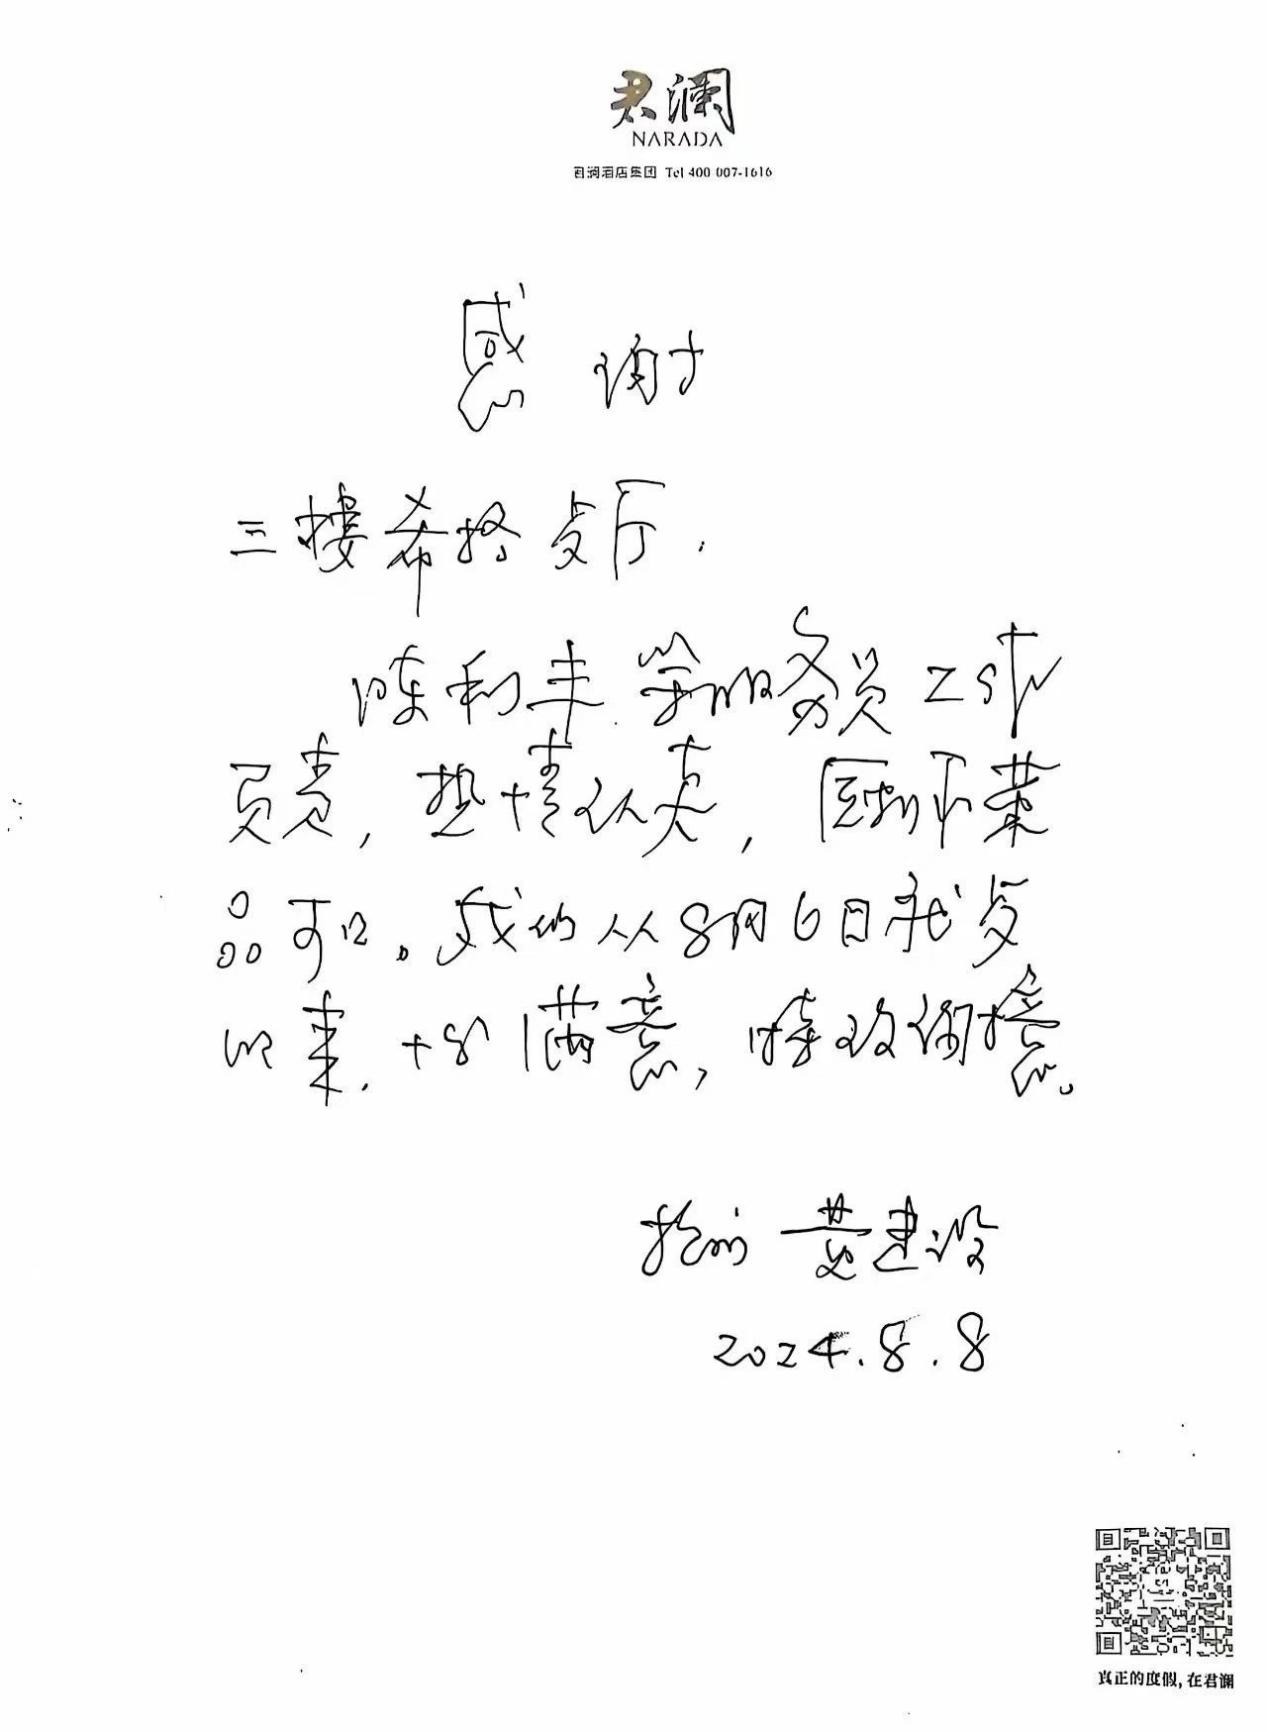 君澜
NARADA
君澜酒店集团 Tel 400 007-1616
感谢
三楼希格餐厅.
陈利丰等服务员工作
负责,热情认真,厨师菜
品可口。我们从8月6日就餐
以来,十分满意,特致谢意。
黄建设
2024.8.8
真正的度假,在君澜